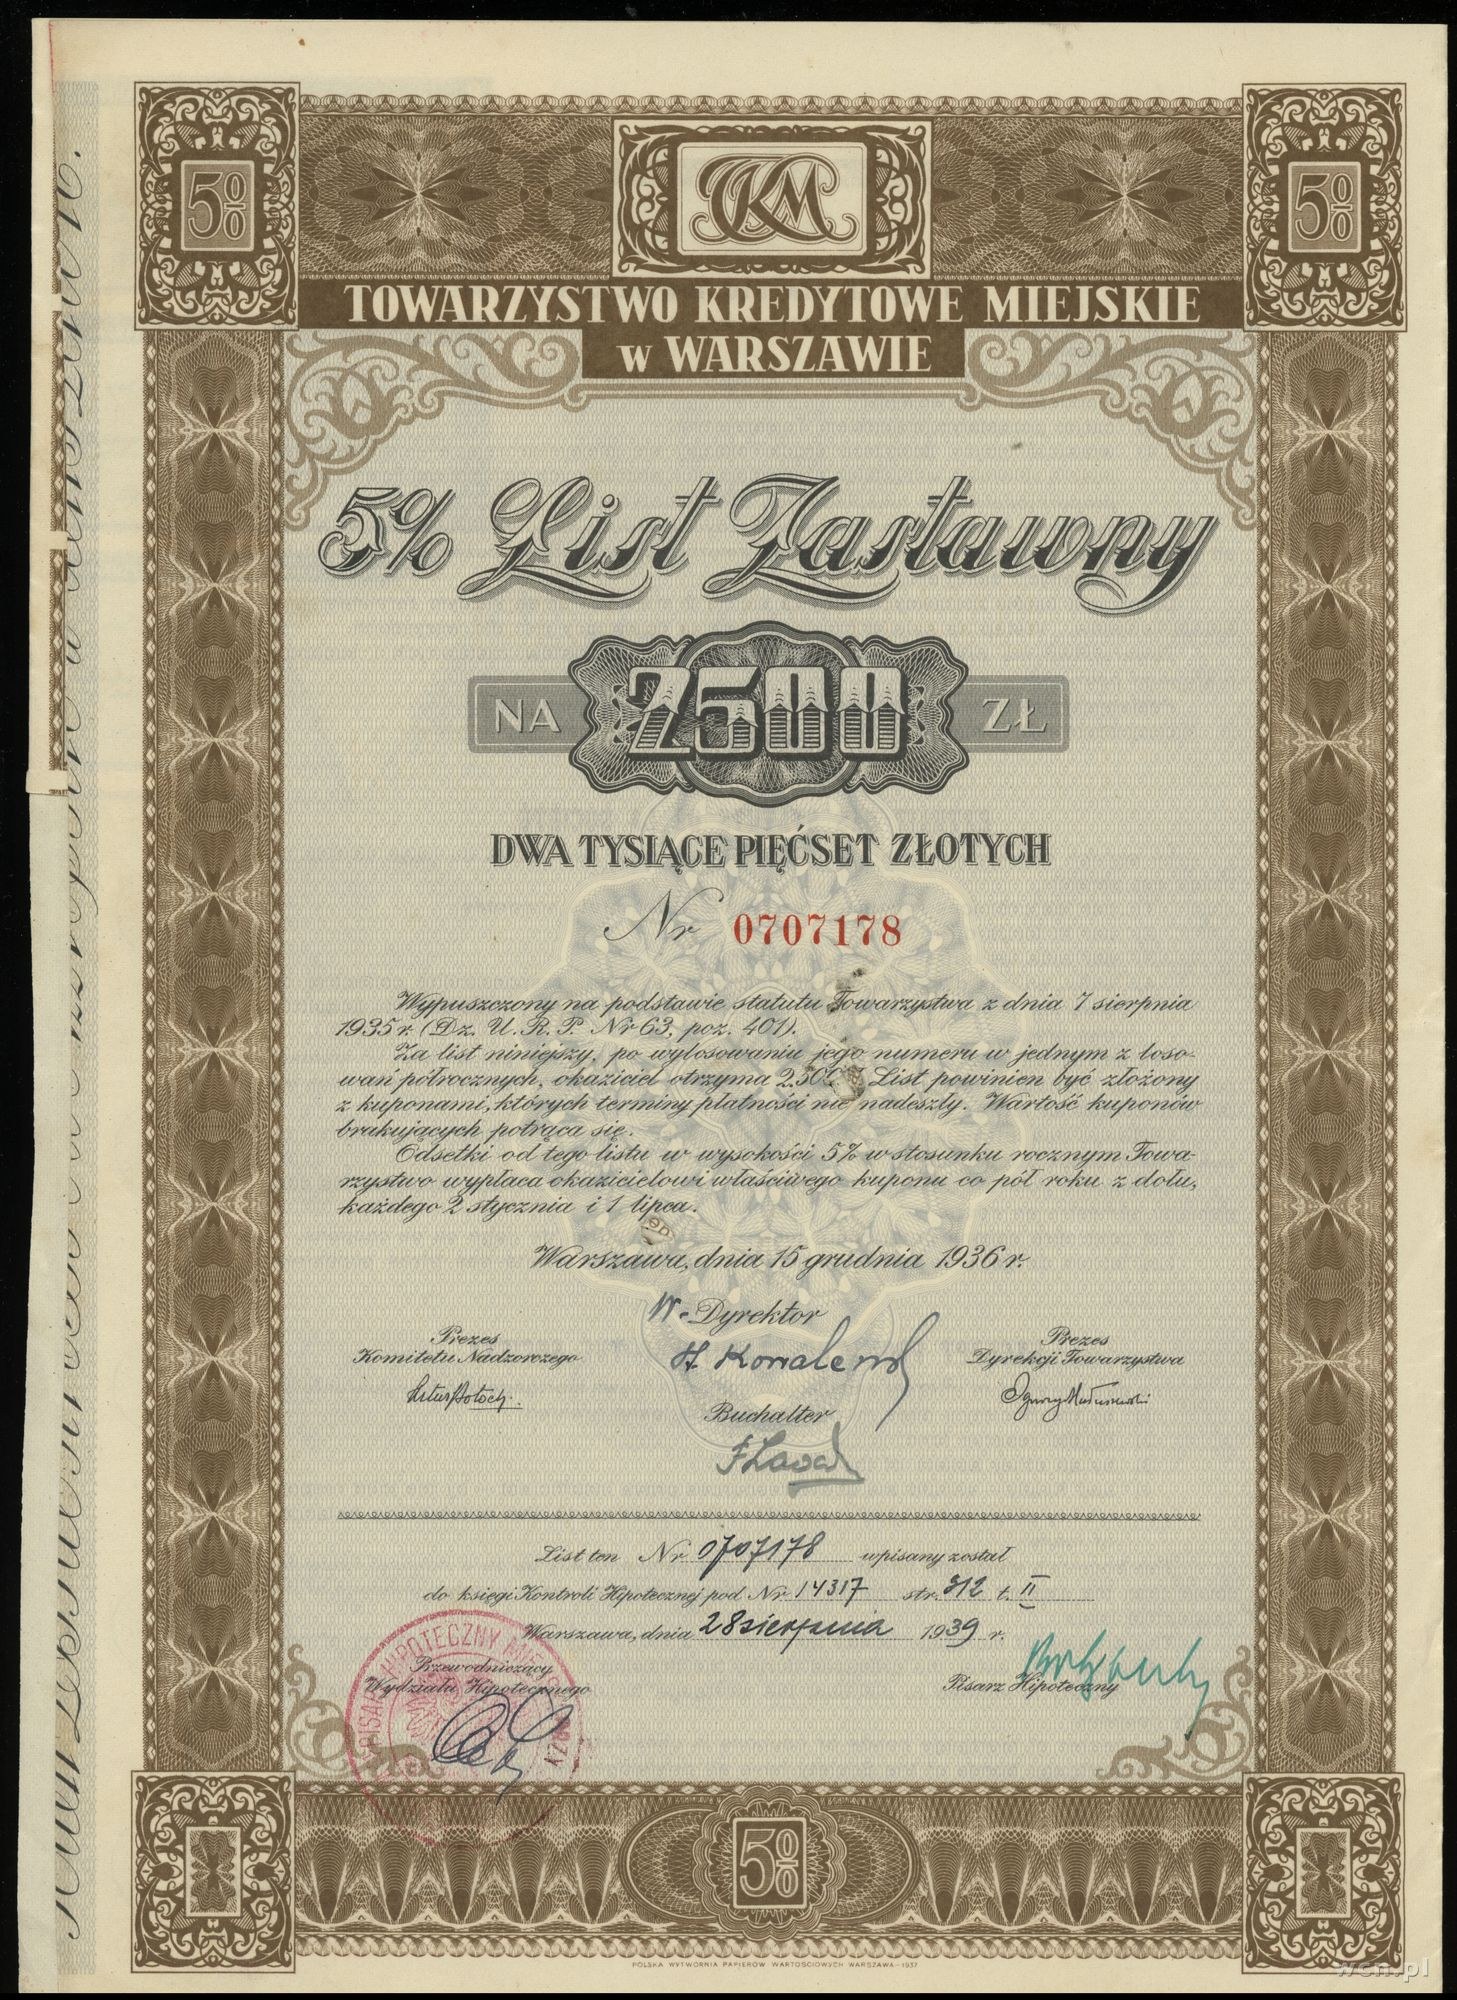 5%
TKM
5%
TOWARZYSTWO KREDYTOWE MIEJSKIE
w WARSZAWIE
5% List Zastawny
NA 2500 ZŁ
DWA TYSIĄCE PIĘĆSET ZŁOTYCH
Nr 0707178
Wypuszczony na podstawie statutu Towarzystwa z dnia 7 sierpnia
1935 r. (Dz. U. R. P. Nr 63, poz. 401).
Za list niniejszy, po wylosowaniu jego numeru w jednym z loso-
wań półrocznych, okaziciel otrzyma 2.500 List powinien być złożony
z kuponami, których terminy płatności nie nadeszły. Wartość kuponów
brakujących potrąca się.
Odsetki od tego listu w wysokości 5% w stosunku rocznym Towa-
rzystwo wypłaca okazicielowi właściwego kuponu co pół roku z dołu,
każdego 2 stycznia i 1 lipca.
Warszawa, dnia 15 grudnia 1936 r.
W-Dyrektor
Prezes
Komitetu Nadzorczego
Prezes
Dyrekcji Towarzystwa
Buchalter
List ten Nr 0707178 wpisany został
do księgi Kontroli Hipotecznej pod Nr 14317 str. 212 t. II
Warszawa, dnia 28 sierpnia 1939 r.
Przewodniczący
Wydziału Hipotecznego
Pisarz Hipoteczny
5%
POLSKA WYTWÓRNIA PAPIERÓW WARTOŚCIOWYCH WARSZAWA-1937
wcn.pl